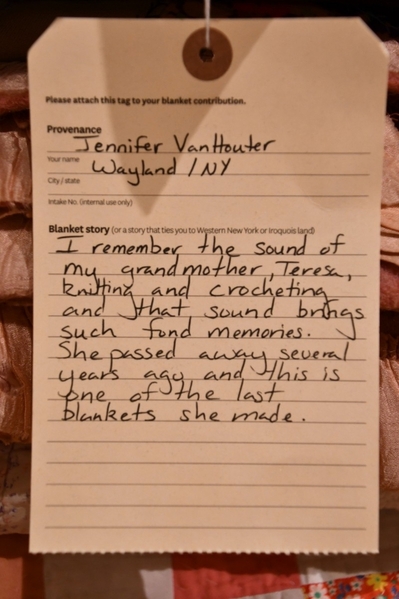 Please attach this tag to your blanket contribution.
Provenance
Jennifer VanHouter
Your name
Wayland / NY
City / state
Intake No. (internal use only)
Blanket story (or a story that ties you to Western New York or Iroquois land)
I remember the sound of
my grandmother, Teresa,
knitting and crocheting
and that sound brings
such fond memories.
She passed away several
years ago and this is
one of the last
blankets she made.